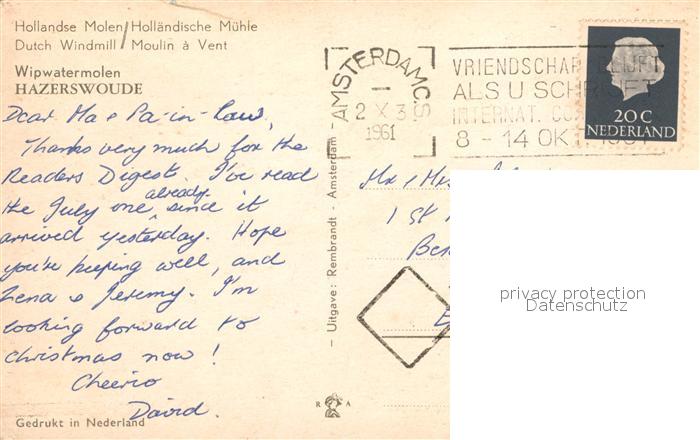 Hollandse Molen / Holländische Mühle
Dutch Windmill / Moulin à Vent
Wipwatermolen
HAZERSWOUDE
Dear Ma & Pa-in-law,
Thanks very much for the
Readers Digest. I've read
already
the July one ^ since it
arrived yesterday. Hope
you're keeping well, and
Lena & Jeremy. I'm
looking forward to
Christmas now!
Cheerio
David.
Gedrukt in Nederland
- Uitgave: Rembrandt - Amsterdam -
R A
AMSTERDAM C.S
2 X 3
1961
VRIENDSCHAP BLIJFT
ALS U SCHRIJFT
INTERNAT.
8 - 14 OKT
20 C
NEDERLAND
Mr & Mrs
1 St
privacy protection
Datenschutz